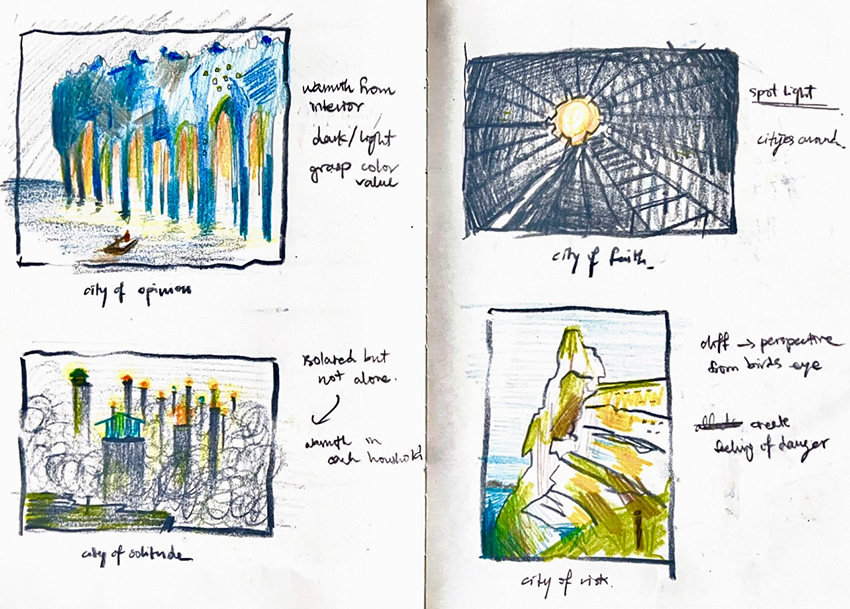 warmth from
interior
dark/light
grasp color
value
city of opinion
isolated but
not alone.
warmth in
each houshold
city of solitude
spot light
cities around.
city of faith
cliff → perspective
from birds eye
create
feeling of danger
city of risk.